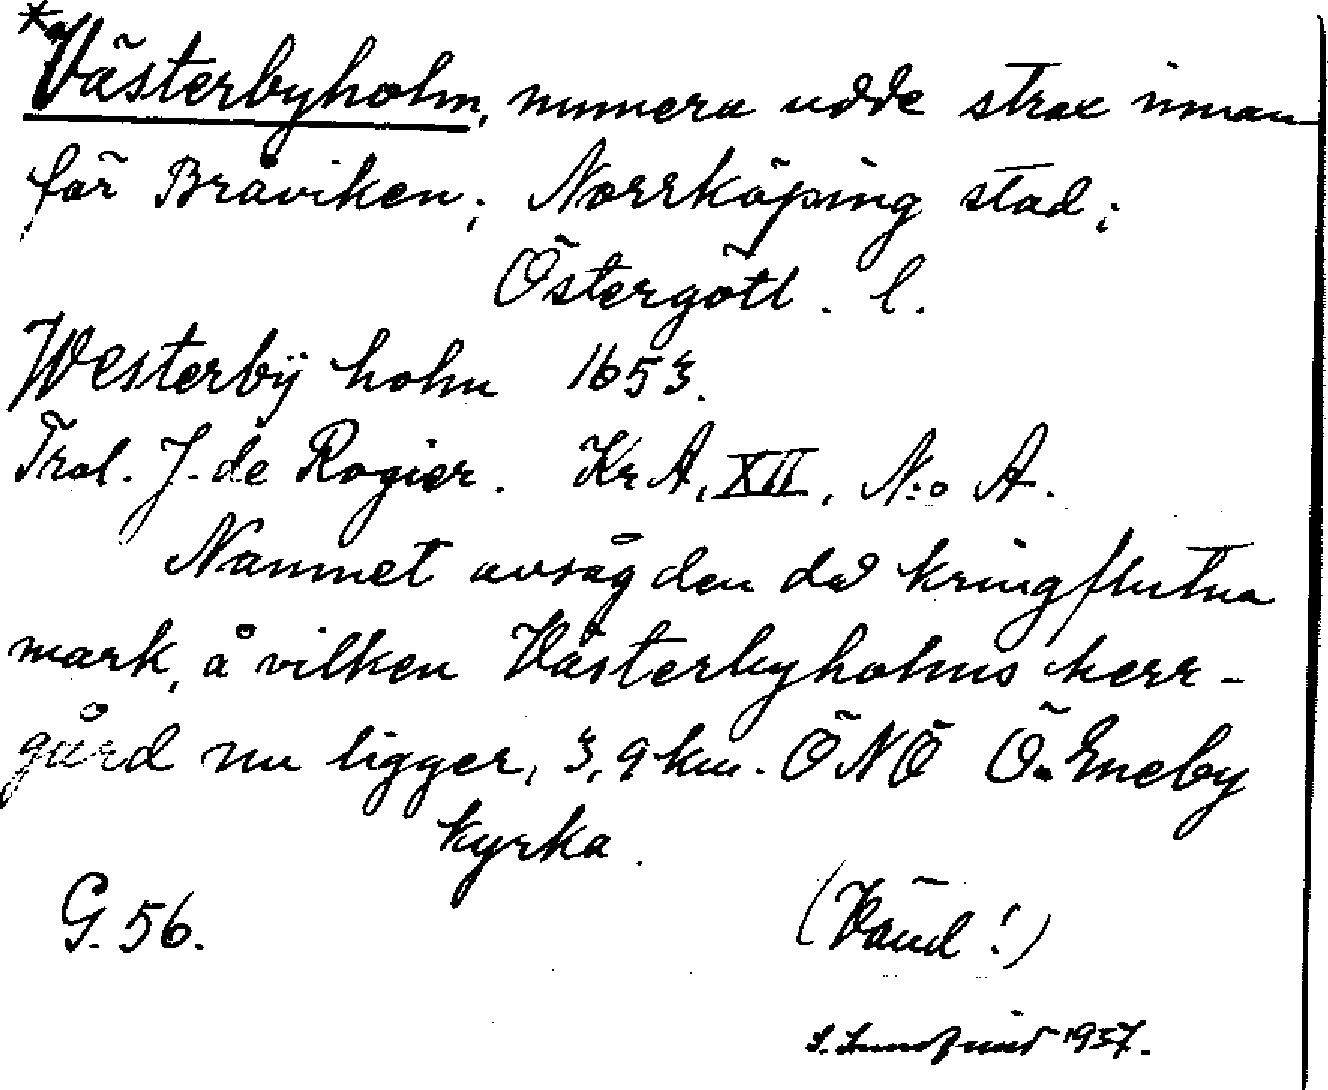 *Västerbyholm, numera udde strax innan
för Bråviken; Norrköping stad;
Östergötl. l.
Westerbÿ holm 1653.
Tral. J. de Rogier. KrA, XII, N:o A.
Namnet avsåg den då kringflutna
mark, å vilken Västerbyholms herr-
gård nu ligger, 3,9 km. ÖNÖ Ö. Eneby
kyrka.
G. 56.
(Vänd!)
1937.